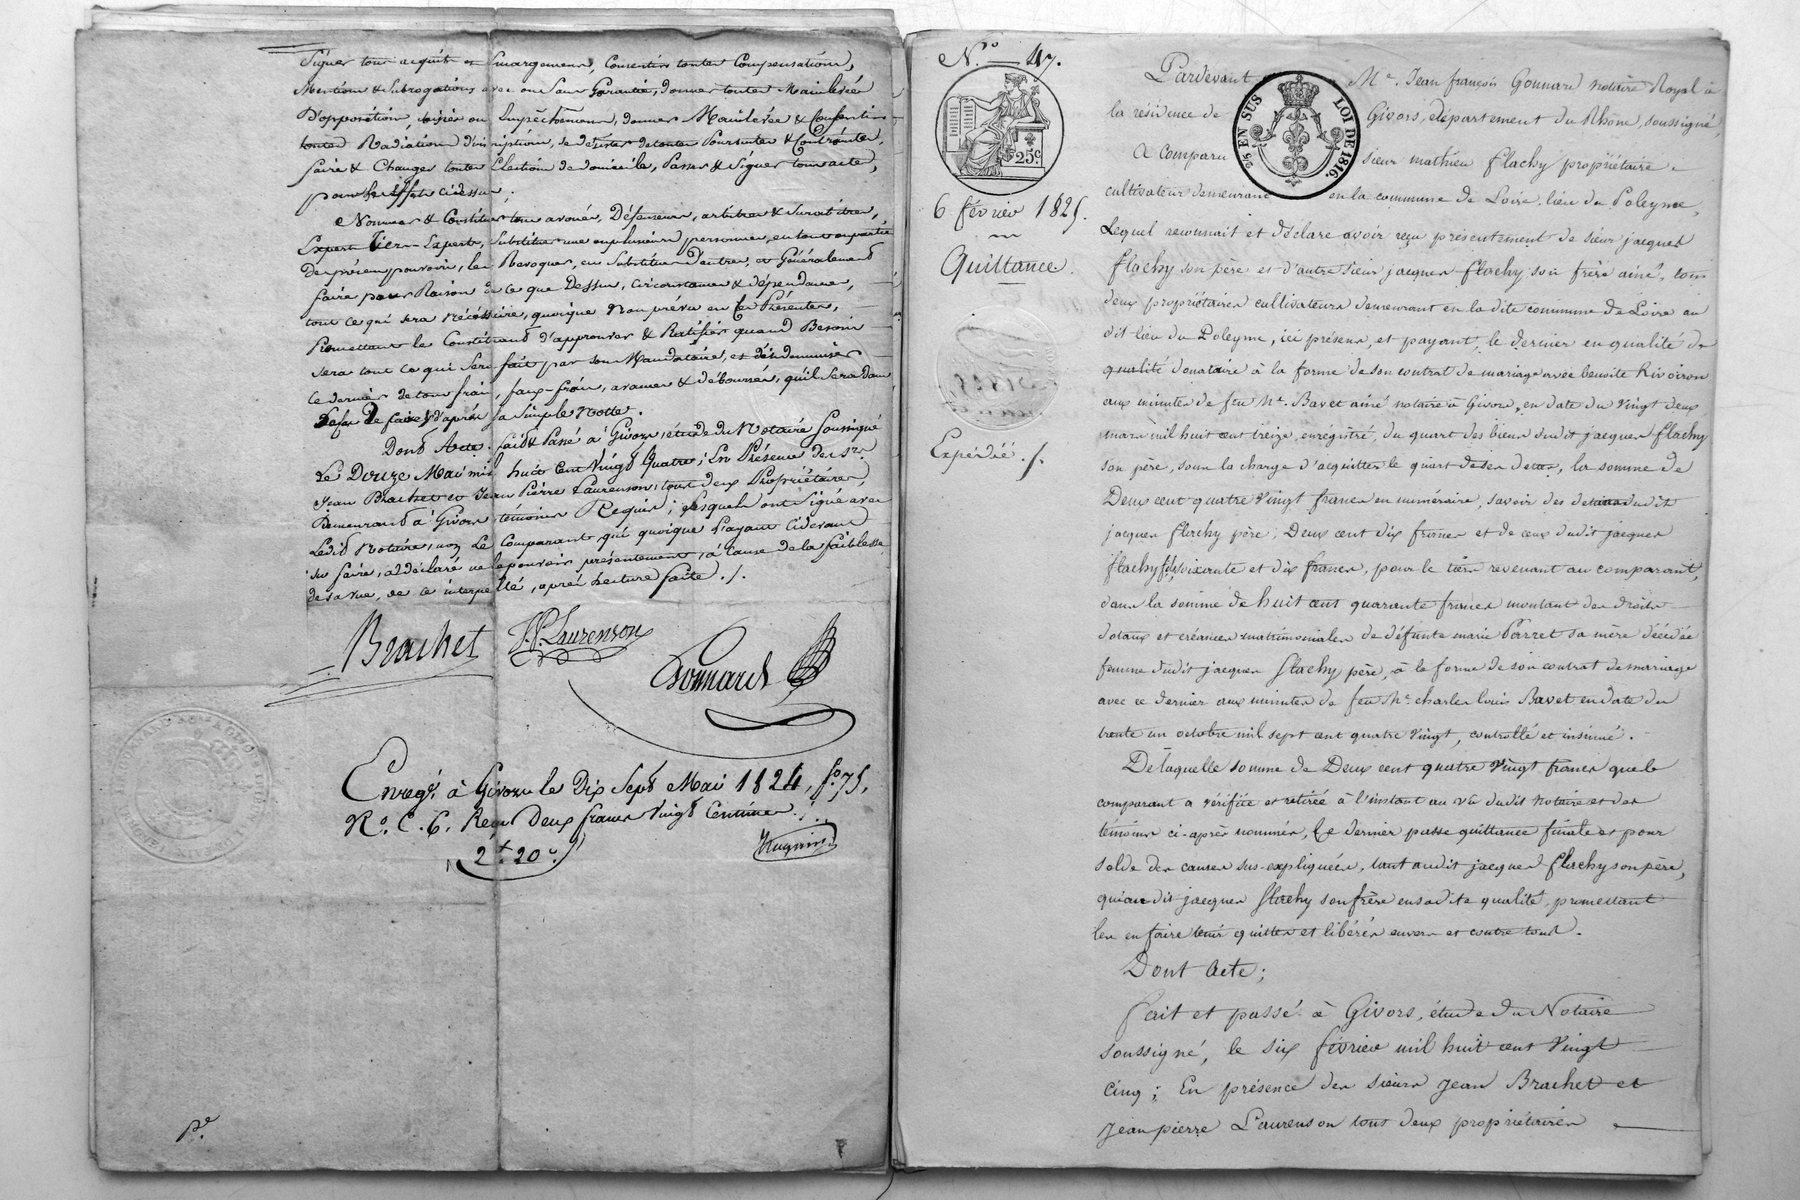 Signer tous acquits et Emargemens, Consentir toutes Compensations,
Mentions & Subrogations avec ou Sans Garantie, donner toutes Mainlevées
D'opposition, saisies ou Empêchemens, donner Mainlevée & Consentir
toutes Radiations d'inscriptions, se désister de toutes Poursuites & Contraintes,
faire & Changer toutes Elections de domicile, Passer & Signer tous actes,
pour les effets ci-dessus;
Nommer & Constituer tous avoués, Défenseurs, arbitres & Surarbitres,
Expert Tiers-Experts, Substituer une ou plusieurs personnes, en tout ou partie
Des présens pouvoirs, les Revoquer, en Substituer d'autres, et Généralement
faire pour Raison de ce que Dessus, circonstances & dépendances,
tout ce qui sera Nécéssaire, quoique Non prévu en ces Présentes,
Promettant le Constituant d'approuver & Ratifier quand Besoin
sera tout ce qui sera fait par son Mandataire, et d'indemniser
ce dernier de tous frais, faux-frais, avances & débourrés, qu'il sera dans
le cas de faire d'après sa simple Notte.
Dont Acte. fait & Passé à Givors, étude du Notaire Soussigné
Le Douze Mai mil huit Cent Vingt Quatre; En Présence des Srs
Jean Brachet et Jean Pierre Laurenson, tous deux Propriétaires,
Demeurant à Givors, témoins Requis; Lesquels ont Signé avec
Ledit Notaire, non Le Comparant qui quoique L'ayant Cidevant
su faire, a déclaré ne le pouvoir présentement, à cause de la faiblesse
de sa vue, de ce interpellé, après Lecture faite ./.
Brachet J. P. Laurenson
Gonnard
Enregé. à Givors le Dix Sept Mai 1824, fo. 75,
Ro. C. 6. Reçu Deux francs Vingt Centimes
2f. 20c.
No. 47.
25c
6 février 1825.
Quittance.
Expédié ./.
25 EN SUS
LOI DE 1816.
Pardevant Me. Jean françois Gonnard notaire Royal à
la résidence de Givors, département du Rhône, soussigné,
A comparu sieur mathieu flachy propriétaire
cultivateur demeurant en la commune de Loire, lieu du Poleyme,
Lequel reconnait et déclare avoir reçu présentement de sieur jacques
flachy son père, et d'autre sieur jacques flachy son frère ainé, tous
deux propriétaires cultivateurs demeurant en la dite commune de Loire au
dit lieu du Poleyme, ici présens, et payant, le dernier en qualité de
qualité donataire à la forme de son contrat de mariage avec benoite Rivoiron
aux minutes de feu Me. Bavet ainé notaire à Givors, en date du vingt deux
mars mil huit cent treize, enregistré, du quart des biens dudit jacques flachy
son père, sous la charge d'acquitter le quart de ses dettes, la somme de
Deux cent quatre vingt francs en numéraire, savoir des deniers dudit
jacques flachy père, Deux cent dix francs et de ceux dudit jacques
flachy fils, soixante et dix francs, pour le tiers revenant au comparant,
dans la somme de huit cent quarante francs montant des droits
dotaux et créances matrimoniales de défunte marie Parret sa mère décédée
femme dudit jacques flachy père, à la forme de son contrat de mariage
avec ce dernier aux minutes de feu Me. charles louis Bavet en date du
trente un octobre mil sept cent quatre vingt, controllé et insinué.
De laquelle somme de Deux cent quatre vingt francs que le
comparant a vérifiée et retirée à l'instant au vu dudit notaire et des
témoins ci-après nommés, Ce dernier passe quittance finale et pour
solde des causes sus-expliquées, tant audit jacques flachy son père,
qu'au dit jacques flachy son frère en sa dite qualité, promettant
les en faire tenir quittes et libérés envers et contre tous.
Dont Acte;
fait et passé à Givors, étude du Notaire
soussigné, le six février mil huit cent Vingt
cinq; En présence des sieurs jean Brachet et
jean pierre Laurenson tous deux propriétaires
Pe.